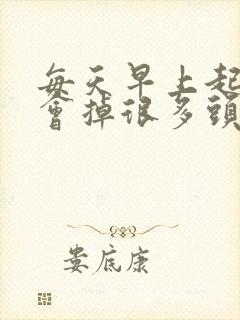 每天早上起
會掉很多頭
娄底康